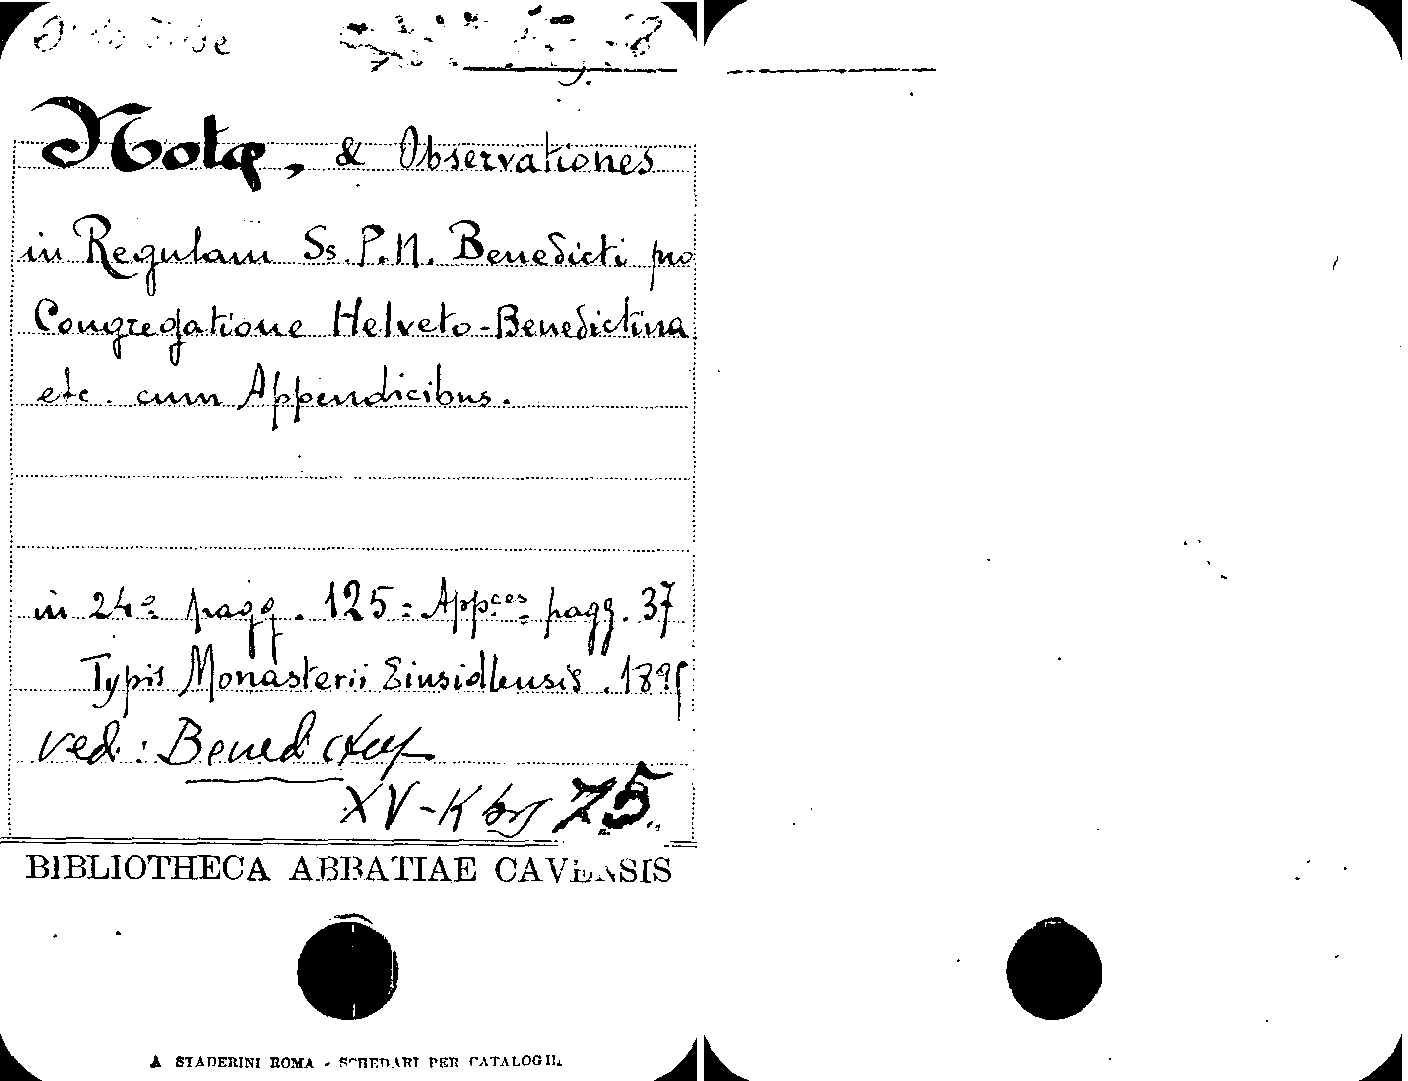 Notæ, & Observationes
in Regulam Ss. P. N. Benedicti pro
Congregatione Helveto-Benedictina
etc. cum Appendicibus.
in 24º pagg. 125 = Appces pagg. 37
Typis Monasterii Einsidlensis. 189
ved: Benedictus
XV-K 75
BIBLIOTHECA ABBATIAE CAVENSIS
A STADERINI ROMA - SCHEDARI PER CATALOGHI